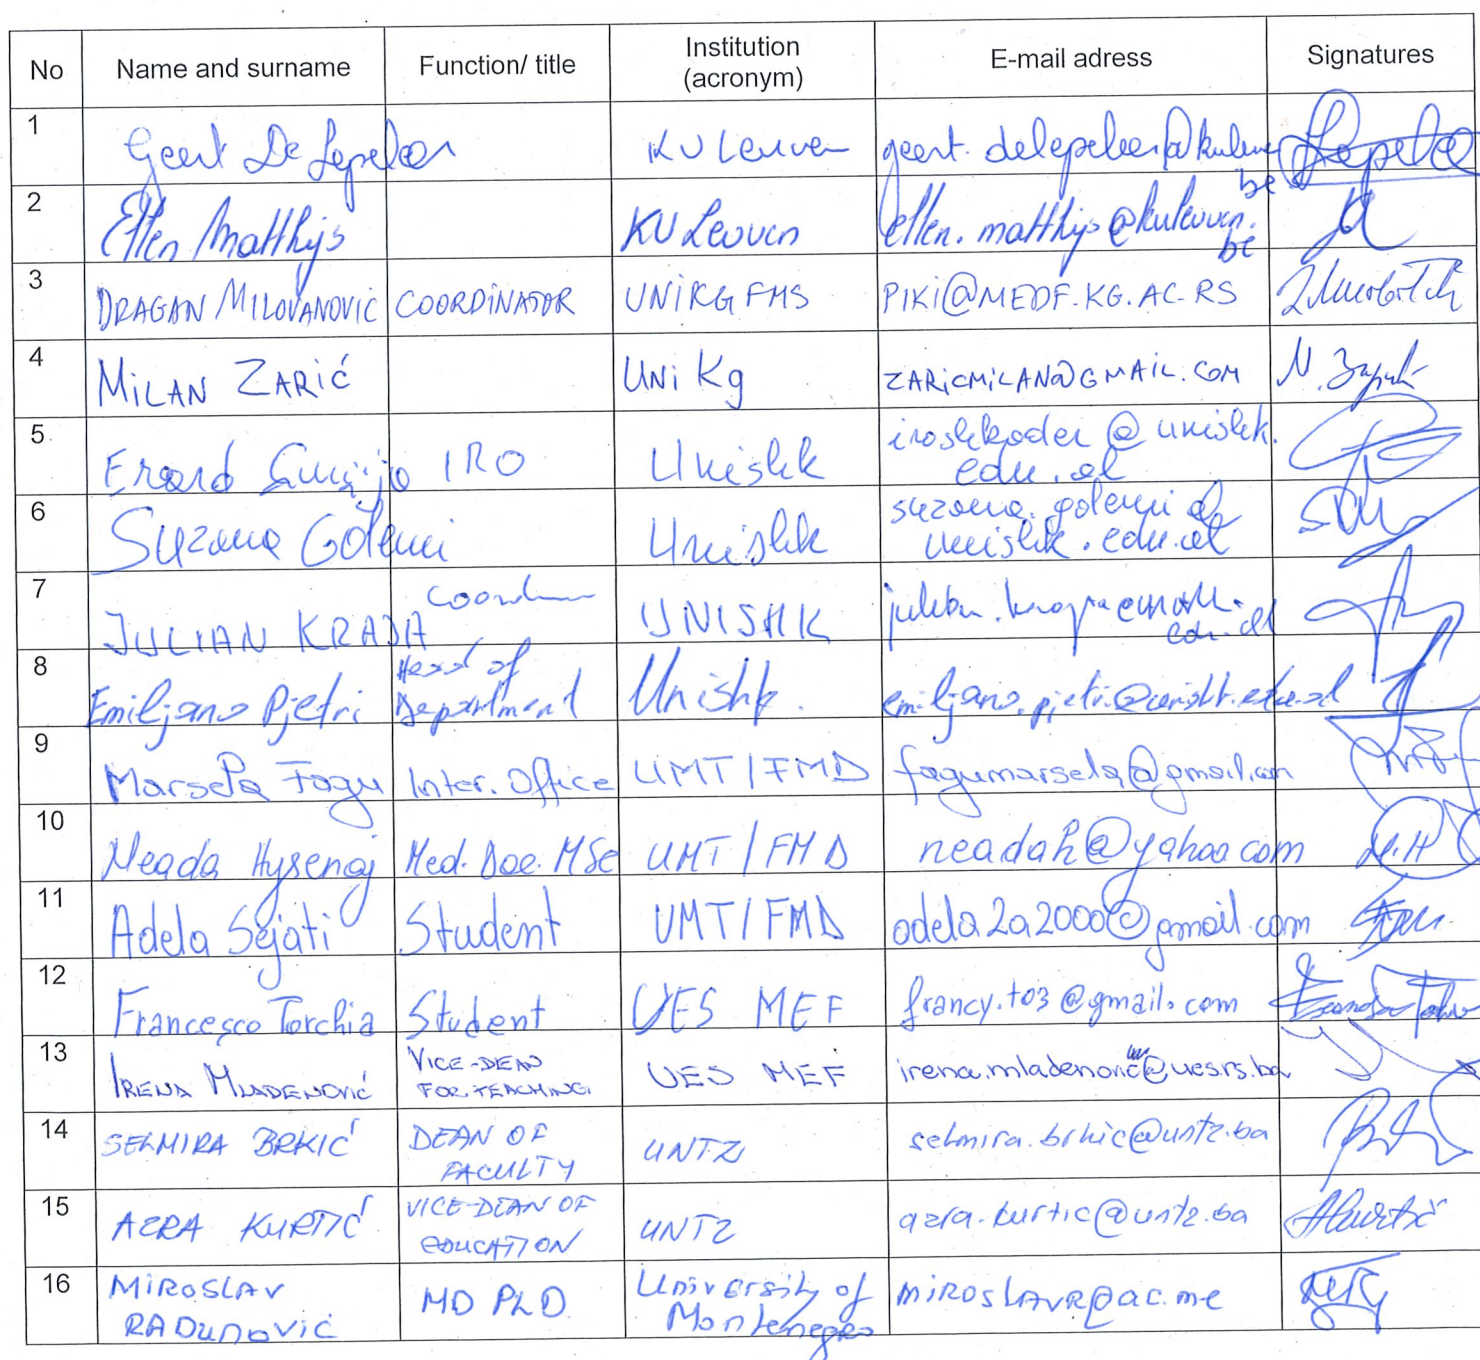 No Name and surname Function/ title Institution (acronym) E-mail adress Signatures
1 Geert De Lepeleer KU Leuven geert.delepeleer@kuleuven.be
2 Ellen Matthijs KU Leuven ellen.matthijs@kuleuven.be
3 DRAGAN MILOVANOVIĆ COORDINATOR UNIKG FMS PIKI@MEDF.KG.AC.RS
4 MILAN ZARIĆ UNI Kg ZARICMILAN@GMAIL.COM
5 Erard IRO Unishk iroshkoder@unishk.edu.al
6 Suzana Golemi Unishk suzana.golemi@unishk.edu.al
7 JULIAN KRAJA UNISHK
8 Emiljano Pjetri Head of Department Unishk. emiljano.pjetri@unishk.edu.al
9 Marsela Fagu Inter. Office UMT/FMD fagumarsela@gmail.com
10 Neada Hysenaj Med. Doc. MSc UMT/FMD neadah@yahoo.com N.H
11 Adela Sejati Student UMT/FMD adela2a2000@gmail.com
12 Francesco Torchia Student UES MEF francy.to3@gmail.com
13 IRENA MLADENOVIĆ VICE-DEAN FOR TEACHING UES MEF irena.mladenovic@ues.rs.ba
14 SELMIRA BRKIĆ DEAN OF FACULTY UNTZ selmira.brkic@untz.ba
15 AZRA KURTIĆ VICE-DEAN OF EDUCATION UNTZ azra.kurtic@untz.ba
16 MIROSLAV RADUNOVIĆ MD PhD University of Montenegro MIROSLAVR@ac.me